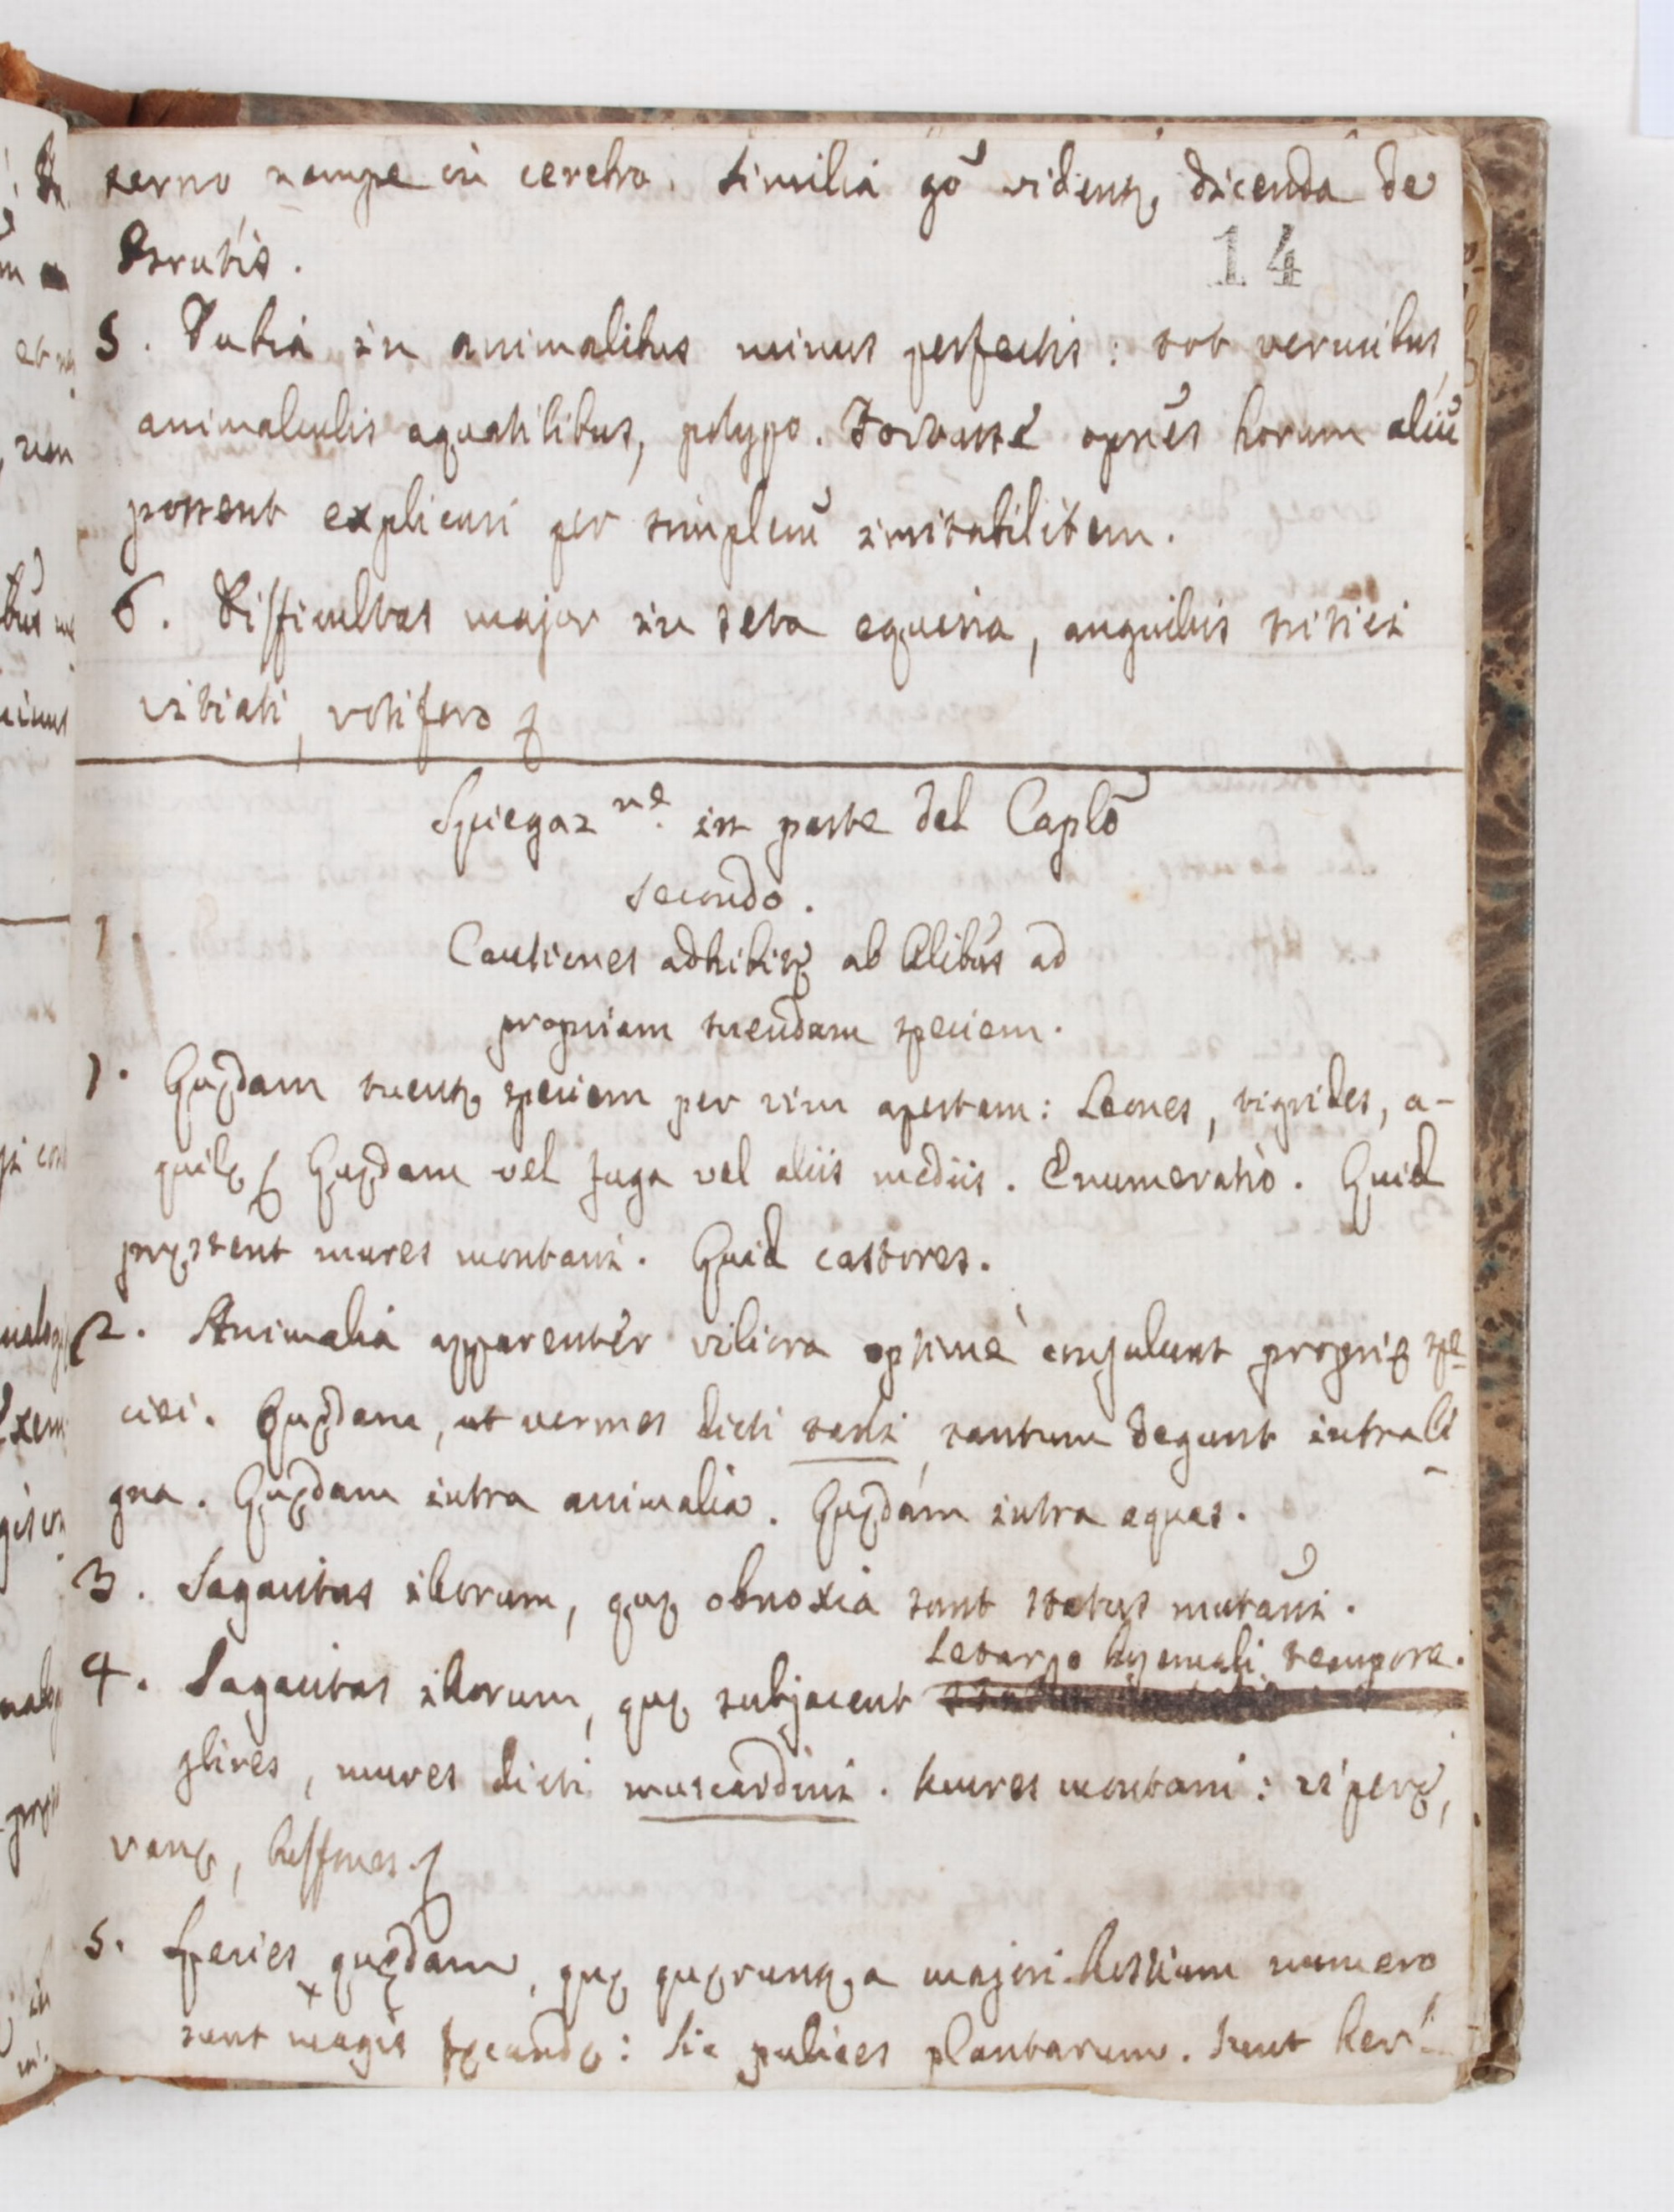 terno nempe in cerebro. Similia gõ vident̃ dicenda de
Brutis.
14
5. Dubia in animalibus minus perfectis: tot vermibus,
animalculis aquatilibus, polypo. Fortasse opnẽs horum aliũ
possent explicari per simplicẽ irritabilitem.
6. Difficultas major in seta equina, anguilulis tritici
vitiati, rotifero &
Spiegaz.ne in parte del Caplõ
Secondo.
Cautiones adhibitę ab Alibũs ad
propriam tuendam speciem.
1. Quędam tuent̃ speciem per vim apertam: Leones, tigrides, a-
quilę & Quędam vel fuga vel aliis mediis. Enumeratio. Quid
pręstent mures montani. Quid castores.
2. Animalia apparenter viliora optimè consulunt proprię spe
ciei. Quędam, ut vermes dicti tarli tantum degunt intra li
gna. Quędam intra animalia. Quędam intra aquas.
3. Sagacitas illorum, quę obnoxia sunt status mutatñi.
Letargo hyemali tempore.
4. Sagacitas illorum, quę subjacent
glires, mures dicti muscardini. Mures montani: viperę,
ranę, buffones &
5. Species quędam, quę quęrunt̃ a majori hostium numero
sunt magis fęcundę: Sic pulices plantarum. Sunt her-